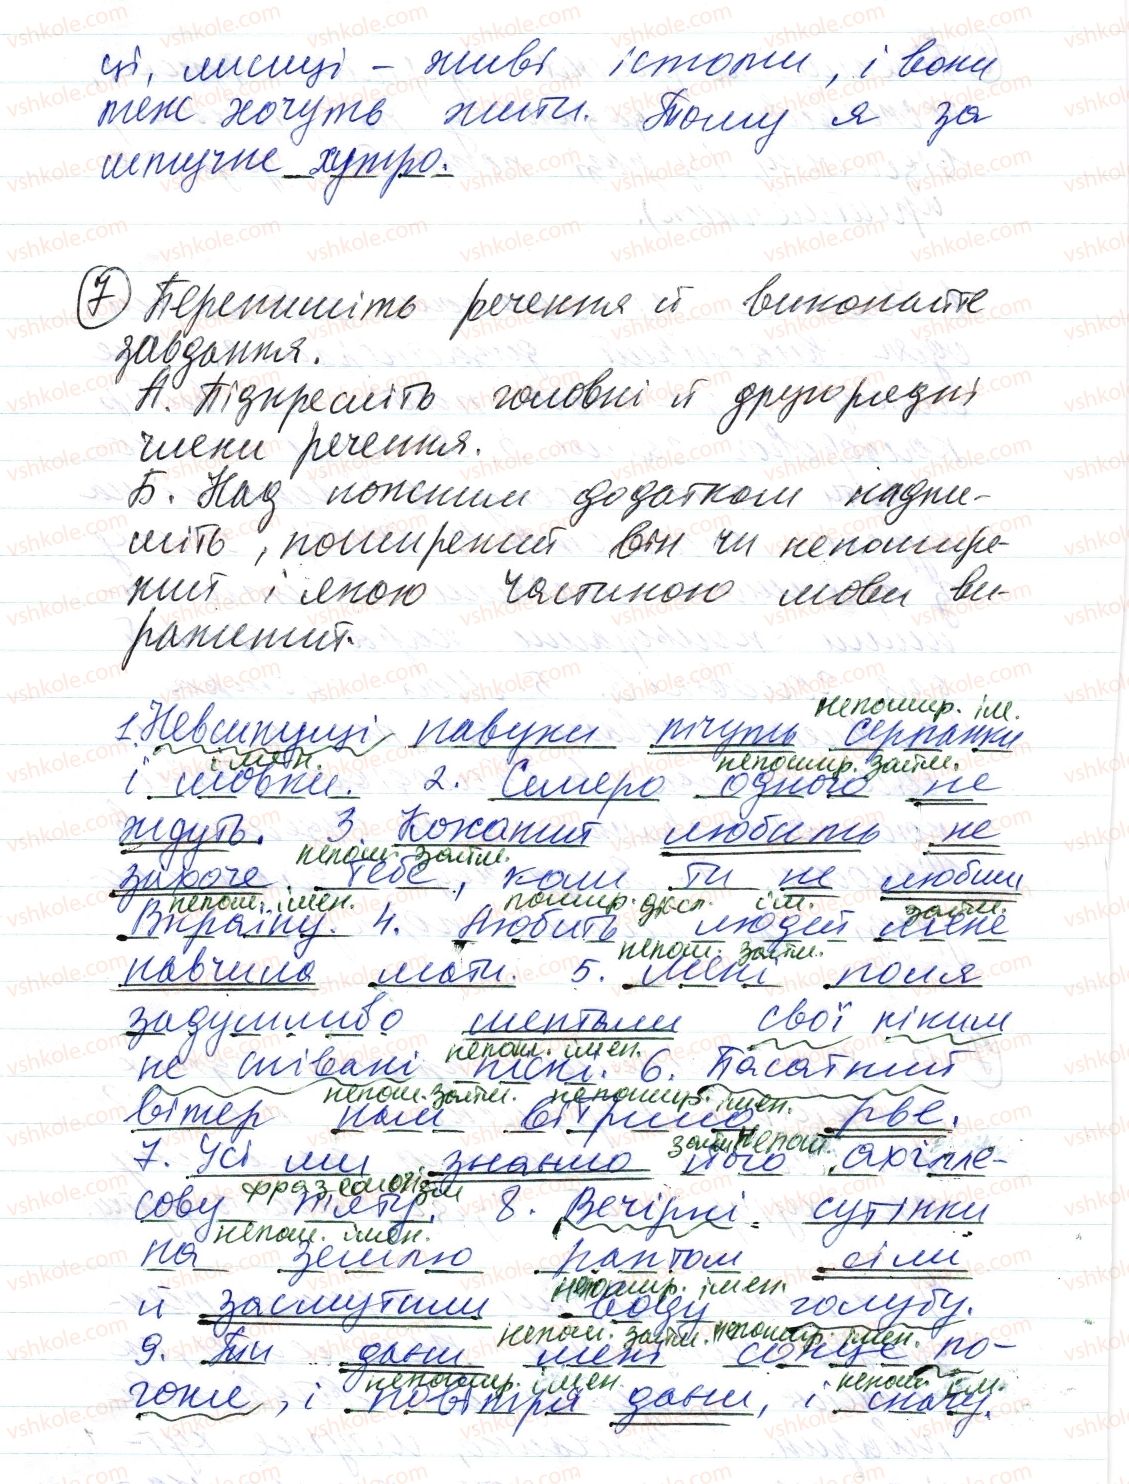 ці, лисиці – живі істоти, і вони
теж хочуть жити. Тому я за
штучне хутро.
7 Перепишіть речення й виконайте
завдання.
А. Підкресліть головні й другорядні
члени речення.
Б. Над кожним додатком надпи-
шіть, поширений він чи непошире-
ний і якою частиною мови ви-
ражений.
непошир. ім.
1. Невсипущі павуки тчуть серпанки
і мен. непошир. займ.
і шовки. 2. Семеро одного не
ждуть. 3. Коханий любить не
непош. займ.
захоче тебе, коли ти не любиш
непош. імен. пошир. дієсл. ім. займ.
Вкраїну. 4. Любить людей мене
непош. займ.
навчила мати. 5. Мені поля
задумливо шептали свої ніким
непош. імен.
не співані пісні. 6. Пасатний
непош. займ. непошир. імен.
вітер нам вітрила рве.
займ. непош.
7. Усі ми знаємо його ахілле-
фразеологізм
сову п'яту. 8. Вечірні сутінки
непош. імен.
на землю раптом сіли
непошир. імен.
й засмутили воду голубу.
непош. займ. непошир. імен.
9. Ти дани мені сонце по-
непошир. імен. непош. ім.
гоже, і повітря дани, і снагу.